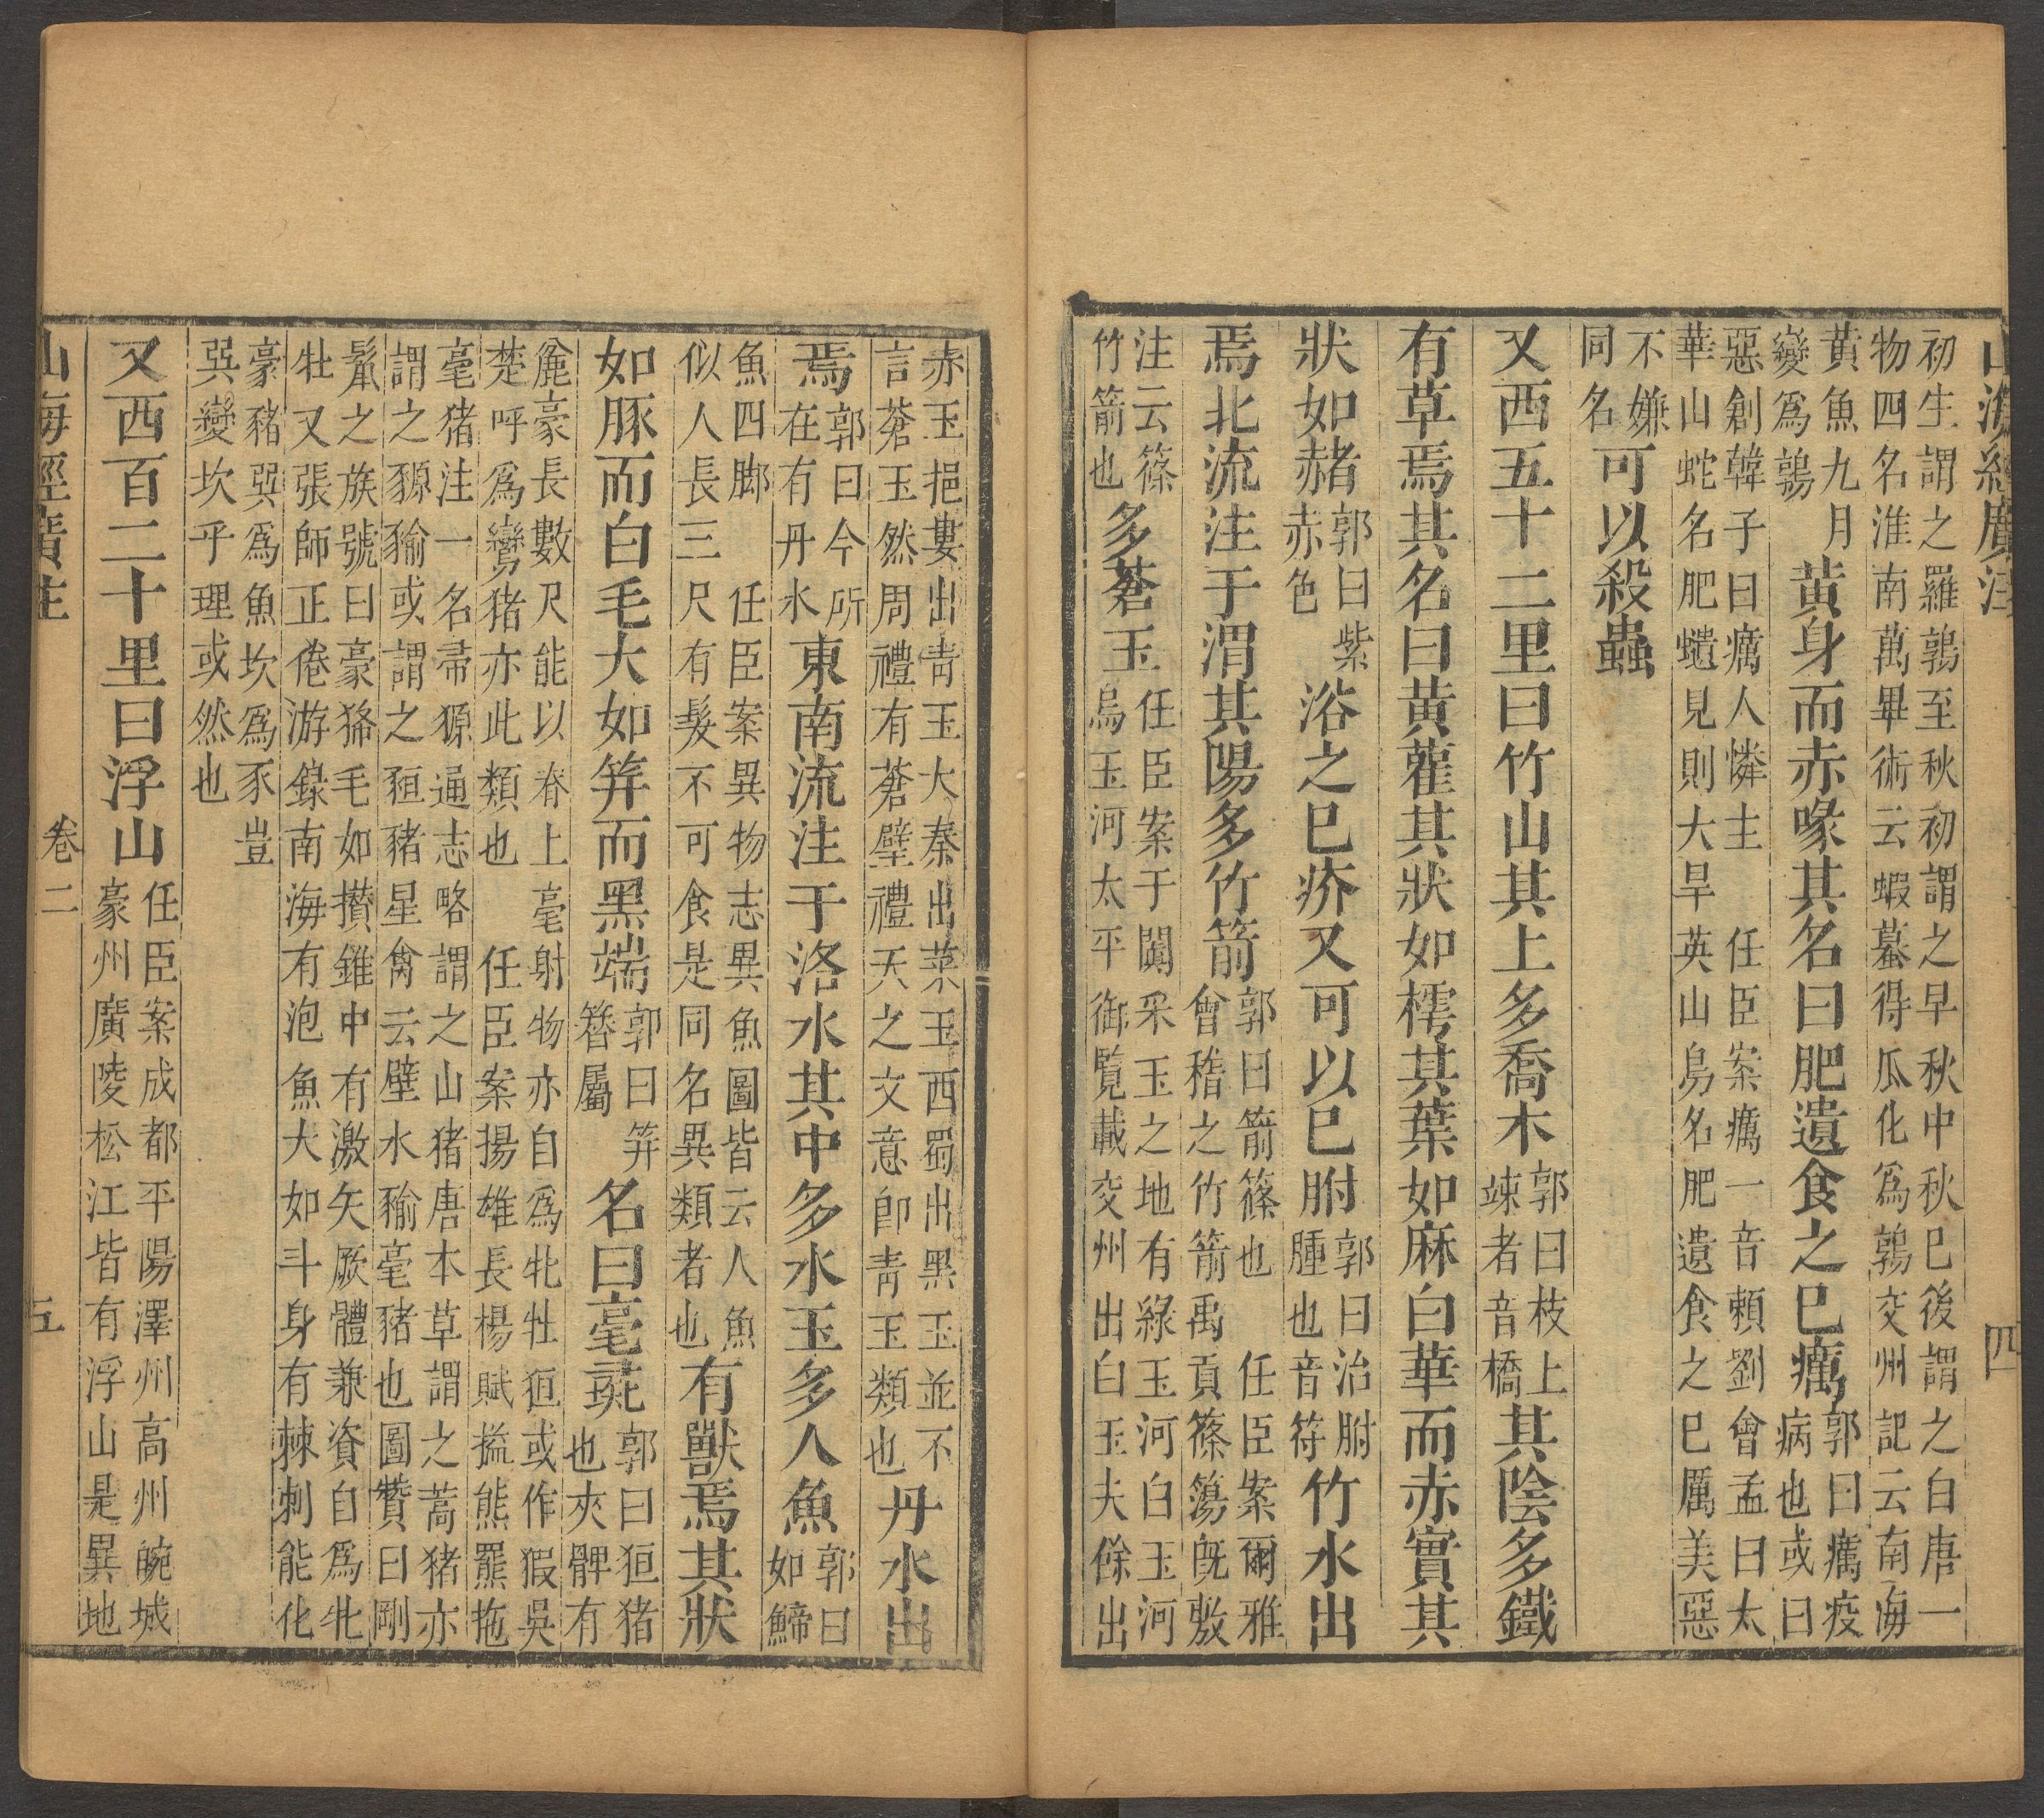 山海經廣注 四
初生謂之羅鶉至秋初謂之早秋中秋巳後謂之白唐一
物四名淮南萬畢術云蝦蟇得瓜化爲鶉交州記云南海
黃魚九月
變爲鶉
黃身而赤喙其名曰肥遺食之巳癘
郭曰癘疫
病也或曰
惡創韓子曰癘人憐主 任臣案癘一音賴劉曾孟曰太
華山蛇名肥𧔥見則大旱英山鳥名肥遺食之巳厲美惡
不嫌
同名
可以殺蟲
又西五十二里曰竹山其上多喬木
郭曰枝上
竦者音橋
其陰多鐵
有草焉其名曰黃雚其狀如樗其葉如麻白華而赤實其
狀如赭
郭曰紫
赤色
浴之巳疥又可以巳胕
郭曰治胕
腫也音符
竹水出
焉北流注于渭其陽多竹箭
郭曰箭篠也 任臣案爾雅
會稽之竹箭禹貢篠簜旣敷
注云篠
竹箭也
多蒼玉
任臣案于闐采玉之地有綠玉河白玉河
烏玉河太平御覽載交州出白玉夫餘出
赤玉挹婁出青玉大秦出菜玉西蜀出黑玉並不
言蒼玉然周禮有蒼璧禮天之文意卽青玉類也
丹水出
焉
郭曰今所
在有丹水
東南流注于洛水其中多水玉多人魚
郭曰
如鯑
魚四脚 任臣案異物志異魚圖皆云人魚
似人長三尺有髮不可食是同名異類者也
有獸焉其狀
如豚而白毛大如笄而黑端
郭曰笄
簪屬
名曰毫彘
郭曰狟猪
也夾髀有
麄豪長數尺能以脊上毫射物亦自爲牝牡狟或作猳吳
楚呼爲鸞猪亦此類也 任臣案揚雄長楊賦搤熊羆拖
毫猪注一名帚獂通志略謂之山猪唐本草謂之蒿猪亦
謂之豲豧或謂之狟豬星禽云壁水㺄毫豬也圖贊曰剛
鬣之族號曰豪狶毛如攢錐中有激矢厥體兼資自爲牝
牡又張師正倦游錄南海有泡魚大如斗身有棘刺能化
豪豬巽爲魚坎爲豕豈
巽變坎乎理或然也
又西百二十里曰浮山
任臣案成都平陽澤州高州皖城
豪州廣陵松江皆有浮山是異地
山海經廣注 卷二 五